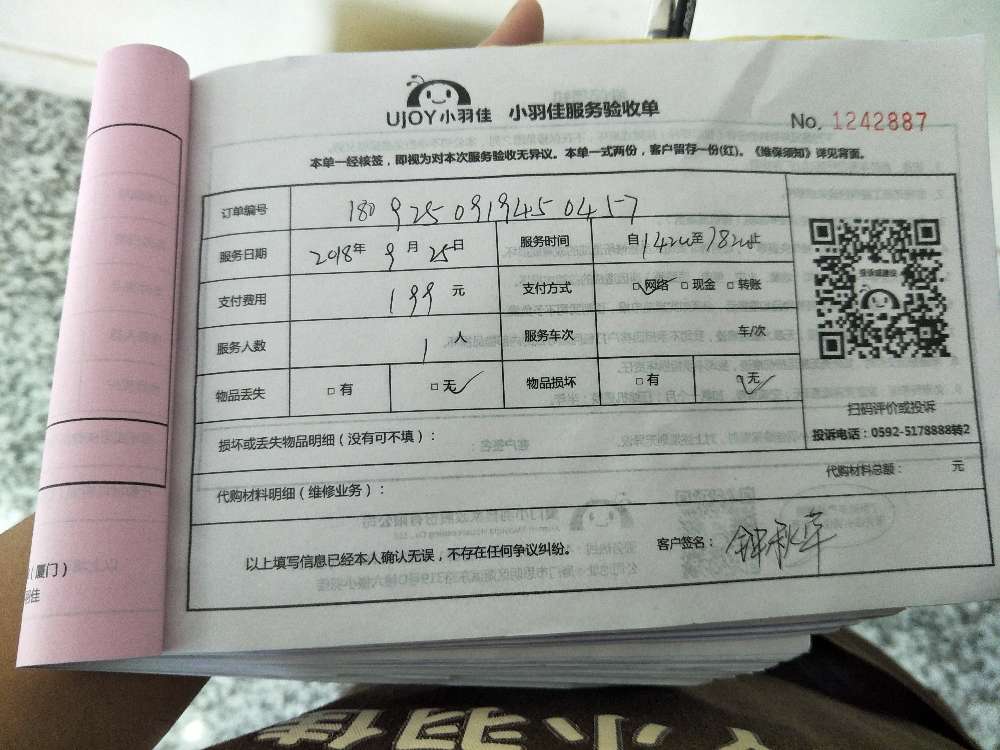 UJOY小羽佳 小羽佳服务验收单
No. 1242887
本单一经核签，即视为对本次服务验收无异议。本单一式两份，客户留存一份(红)。《维保须知》详见背面。
订单编号 180925091945 0457
服务日期 2018年9月25日 服务时间 自14200至18200止
支付费用 199元 支付方式 □网络 □现金 □转账
服务人数 1人 服务车次 车/次
物品丢失 □有 □无 物品损坏 □有 □无
投诉或建议
扫码评价或投诉
投诉电话：0592-5178888转2
损坏或丢失物品明细（没有可不填）：
代购材料明细（维修业务）： 代购材料总额： 元
以上填写信息已经本人确认无误，不存在任何争议纠纷。 客户签名：钟秋萍
（厦门）
羽佳
小羽佳